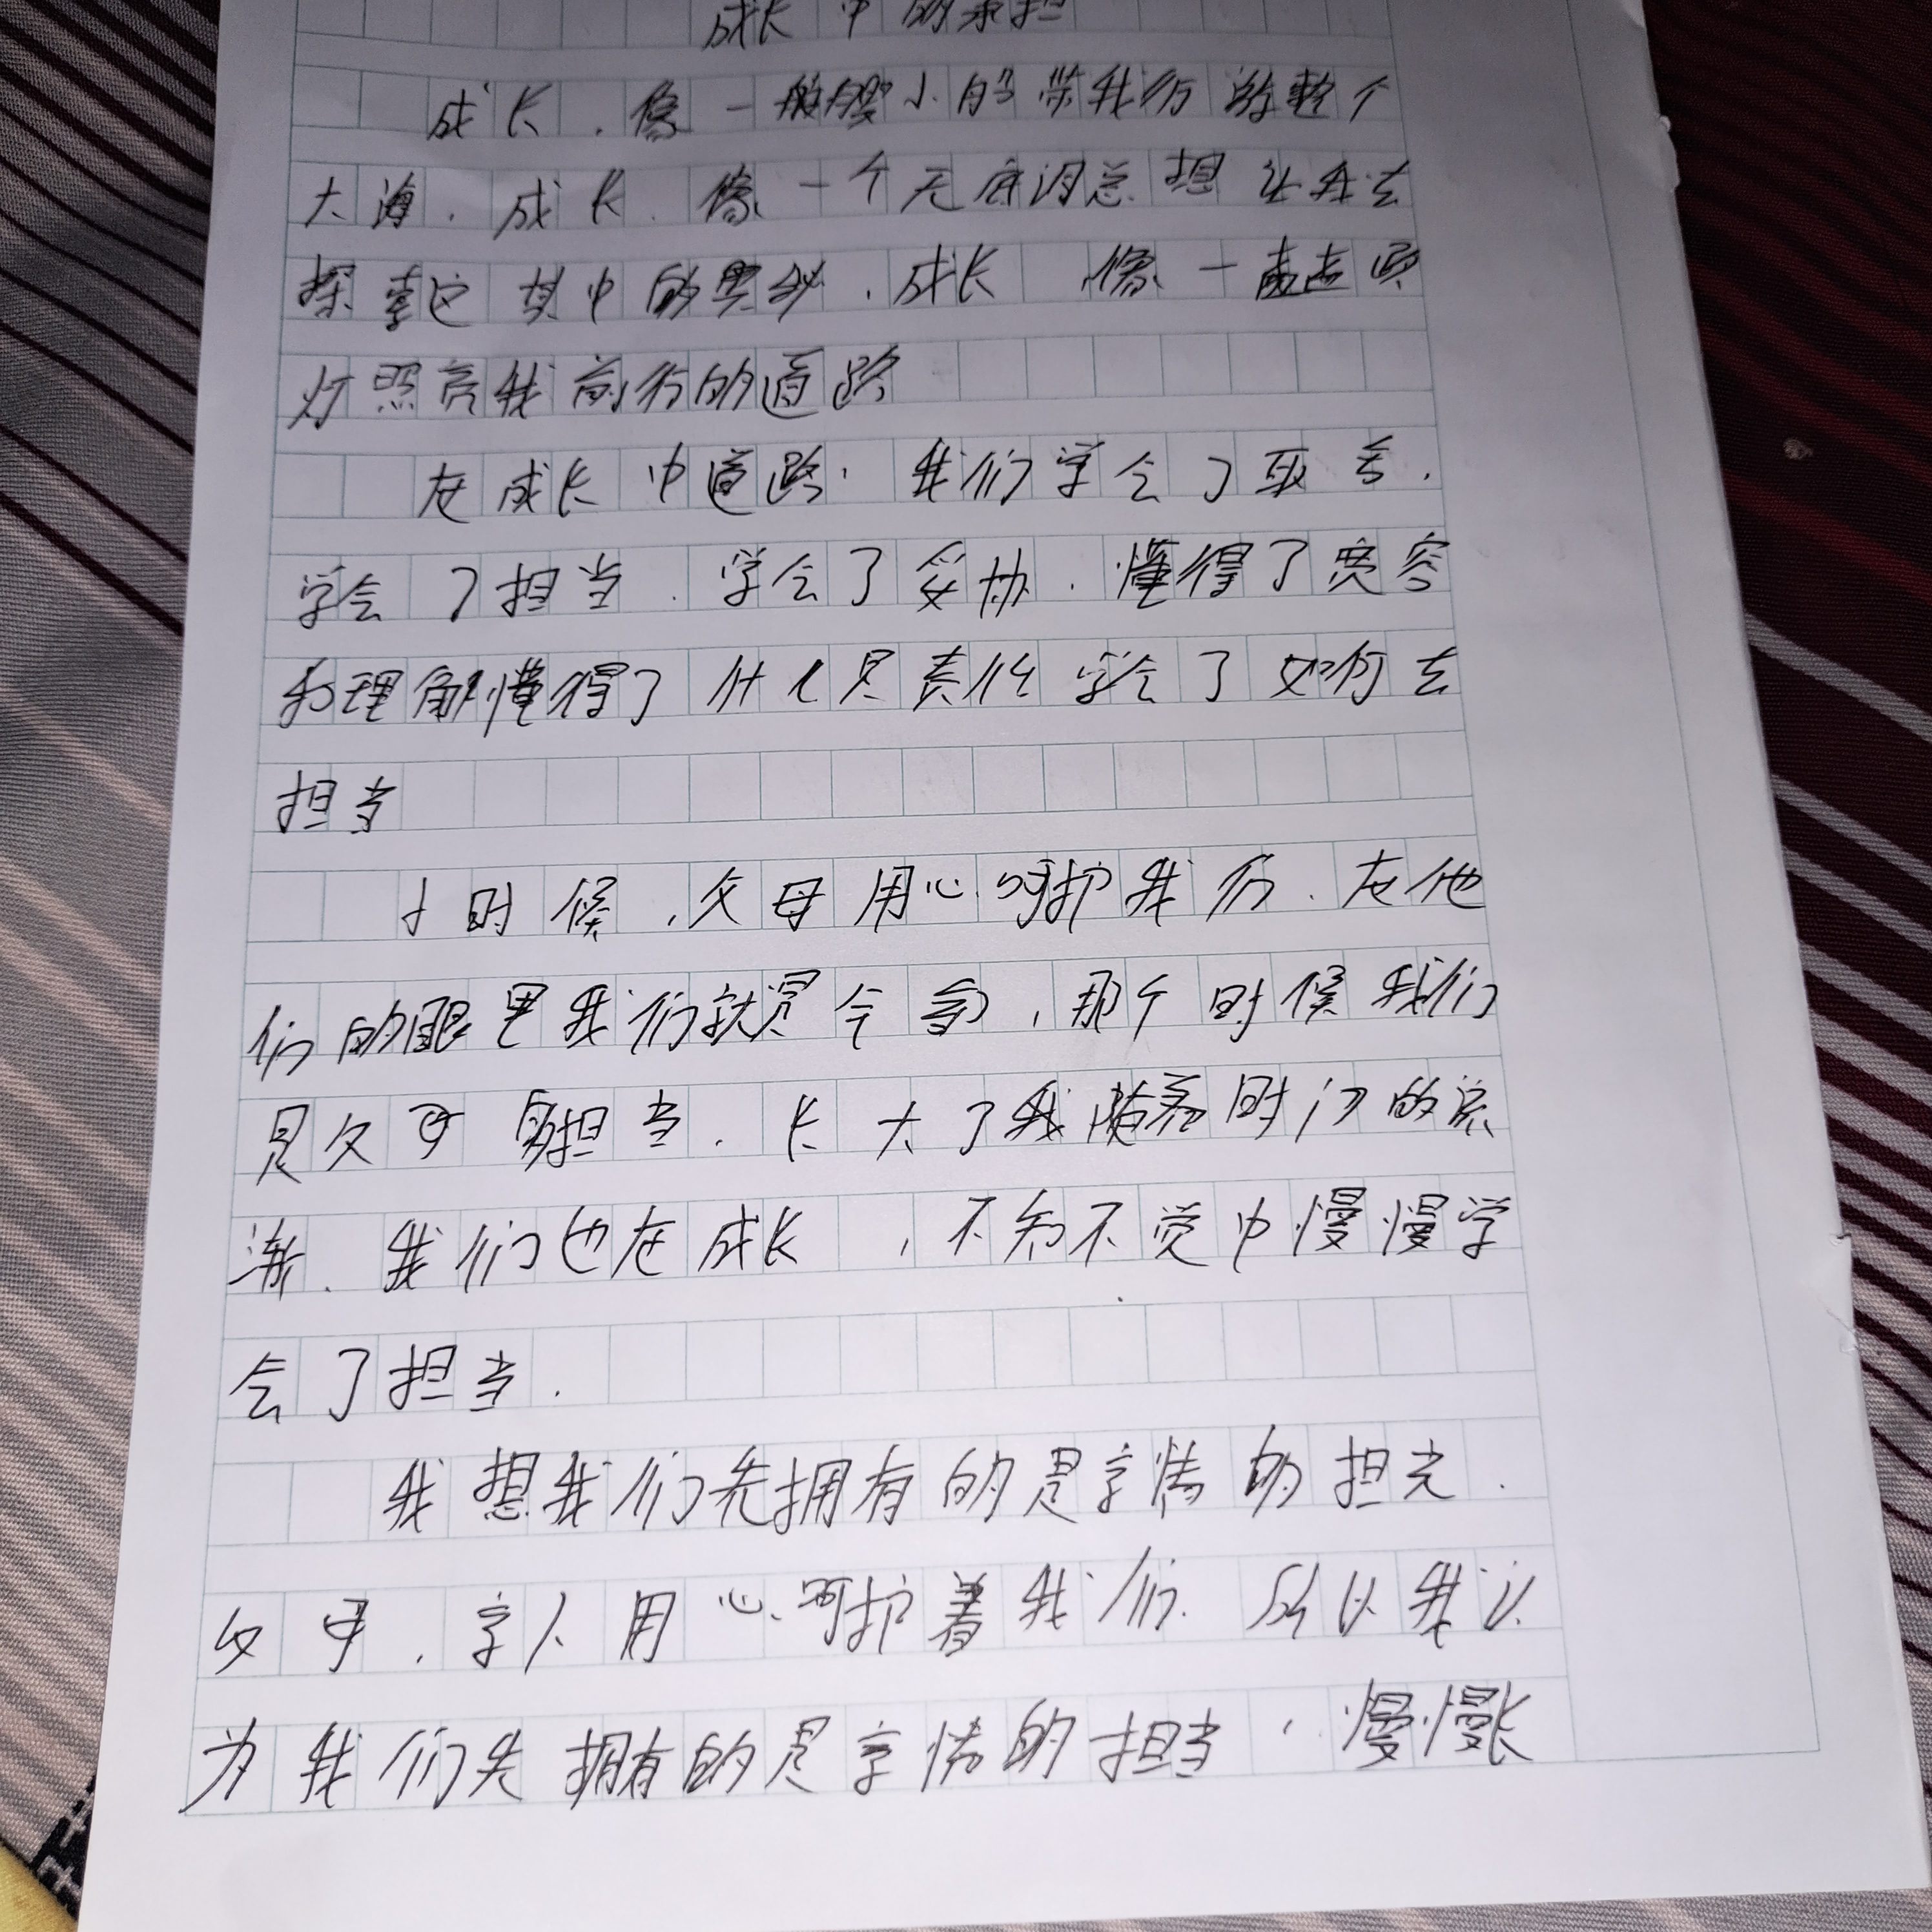 成长中的承担
成长,像一艘小船带我们游整个
大海.成长.像一个无底洞总想让我去
探索这其中的奥秘.成长 像一盏
灯照亮我前行的道路
在成长中道路,我们学会了取舍.
学会了担当.学会了妥协.懂得了宽容
和理解懂得了什么是责任学会了如何去
担当
小时候,父母用心呵护我们.在他
们的眼里我们就是全部,那个时候我们
是父母的担当.长大了我随着时间的流
逝.我们也在成长,不知不觉中慢慢学
会了担当.
我想我们先拥有的是亲情的担当.
父母.家人用心呵护着我们.所以我认
为我们先拥有的是亲情的担当,慢慢长